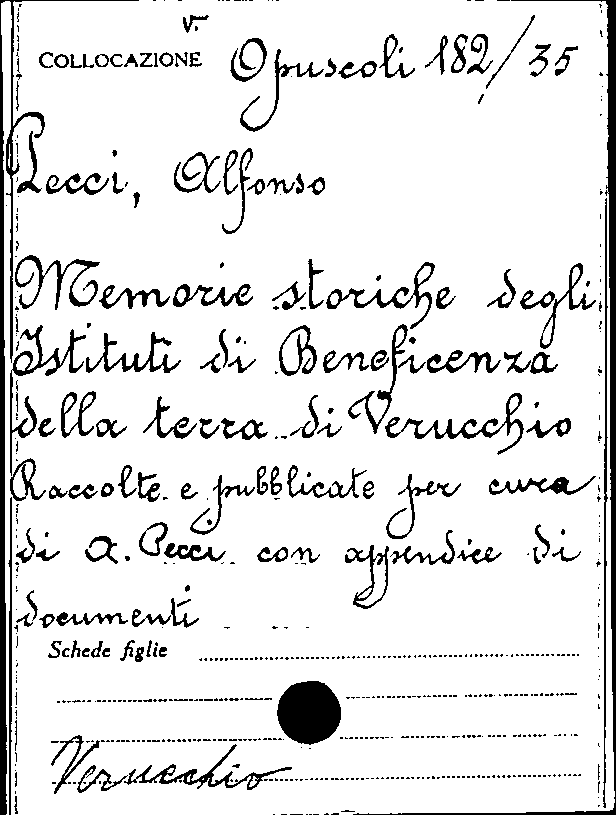 v.
COLLOCAZIONE Opuscoli 182/35
Pecci, Alfonso
Memorie storiche degli
Istituti di Beneficenza
della terra di Verucchio
Raccolte e pubblicate per cura
di A. Pecci con appendice di
documenti
Schede figlie
Verucchio